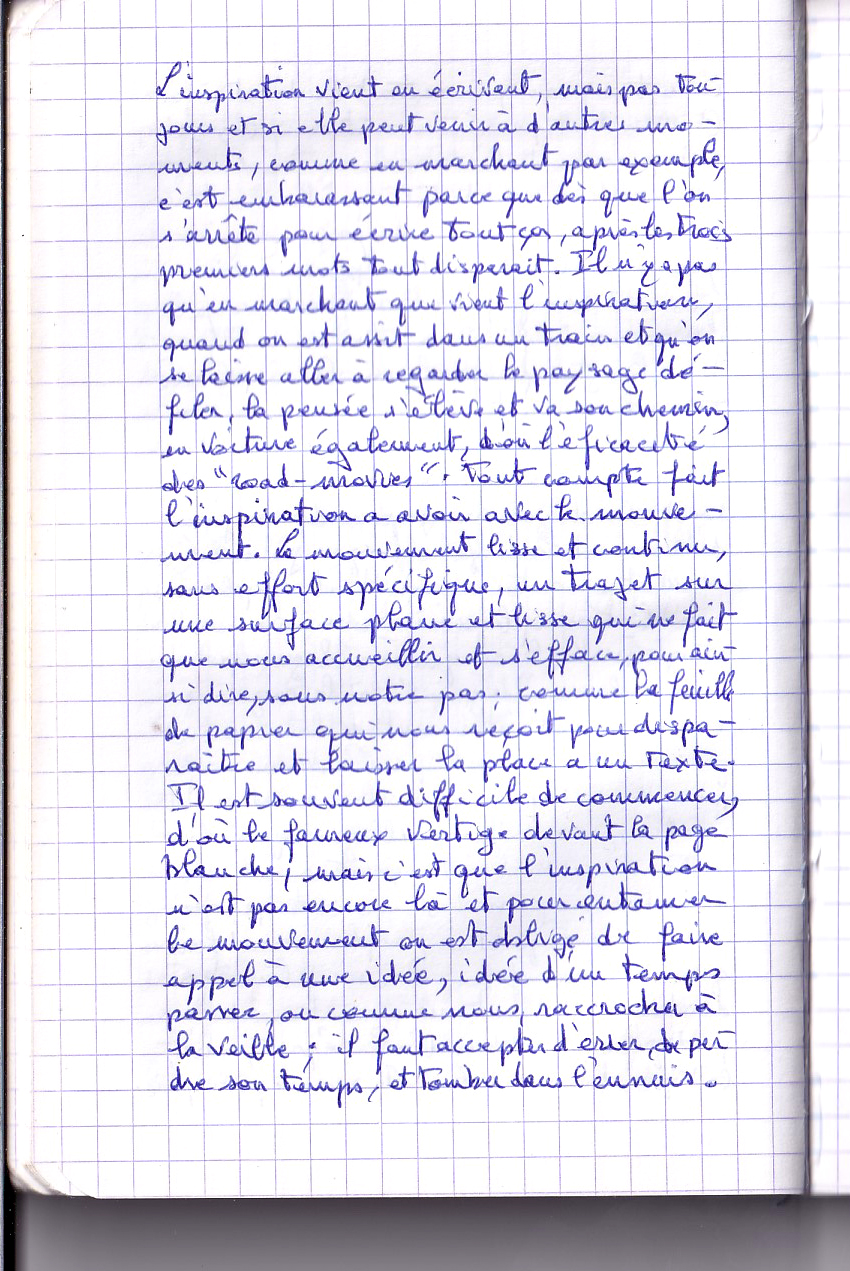 L'inspiration vient en écrivant, mais pas tou-
jours et si elle peut venir à d'autres mo-
ments, comme en marchant par exemple,
c'est embarassant parce que dès que l'on
s'arrête pour écrire tout ça, après les trois
premiers mots tout disparait. Il n'y a pas
qu'en marchant que vient l'inspiration,
quand on est assit dans un train et qu'on
se laisse aller à regarder le paysage dé-
filer, la pensée s'élève et va son chemin,
en voiture également, d'où l'éficacité
des "road-movies". Tout compte fait
l'inspiration a avoir avec le mouve-
ment. Le mouvement lisse et continu,
sans effort spécifique, un trajet sur
une surface plane et lisse qui ne fait
que nous accueillir et s'efface, pour ain-
si dire, sous notre pas, comme la feuille
de papier qui nous reçoit pour dispa-
raître et laisser la place a un texte.
Il est souvent difficile de commencer,
d'où le fameux vertige devant la page
blanche, mais c'est que l'inspiration
n'est pas encore là et pour entamer
le mouvement on est obligé de faire
appel à une idée, idée d'un temps
passer, ou comme nous, raccrocher à
la veille ; il faut accepter d'errer, de per
dre son temps, et tomber dans l'ennuis.